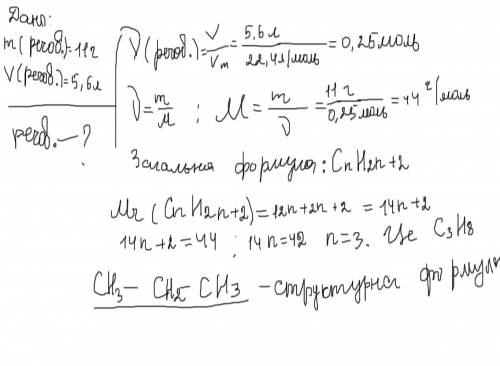 Дано:
m(речов.)=11г
V(речов.)=5,6л
речов. — ?
ν(речов.)=V/Vm=5,6л/22,4л/моль=0,25моль
ν=m/M ; M=m/ν=11г/0,25моль=44г/моль
Загальная формула: CnH2n+2
Mr(CnH2n+2)=12n+2n+2=14n+2
14n+2=44 ; 14n=42 n=3. Це C3H8
CH3—CH2-CH3 -структурна формула